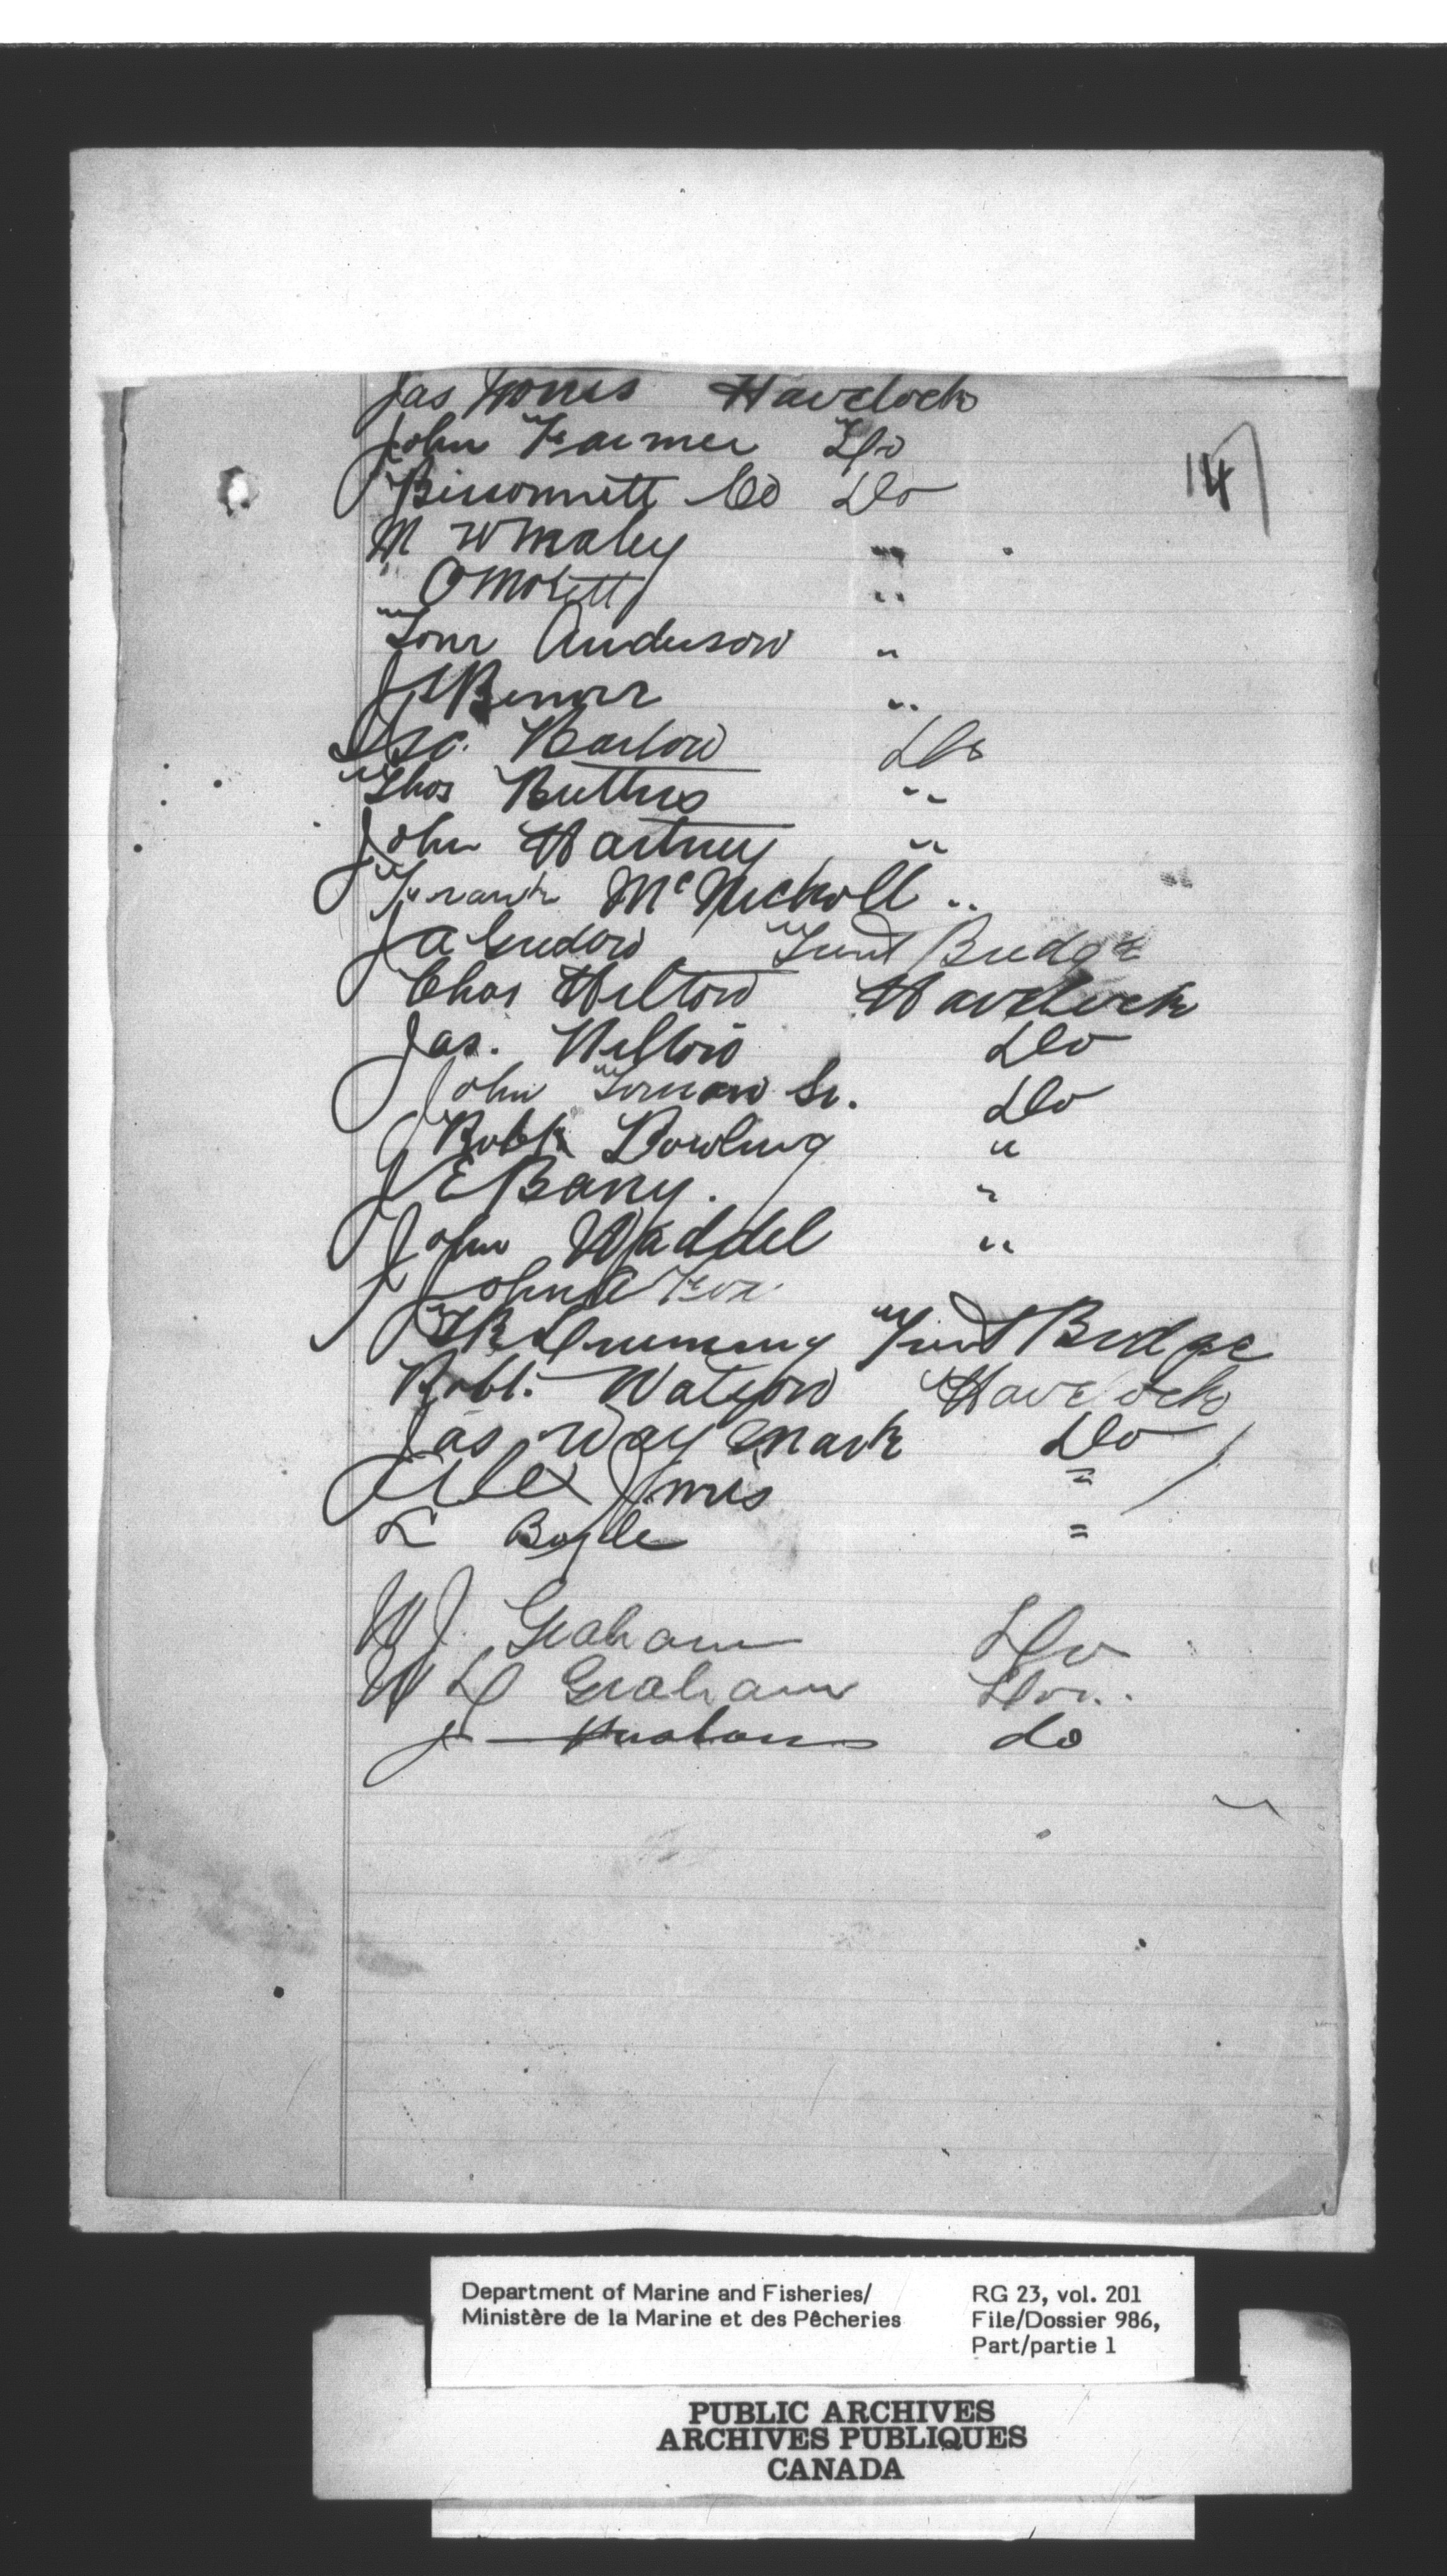 Jas Havelock
John Farmer Do
14
Bissonnett Co Do
M W Maley "
O Molitt "
Tom Anderson "
J S "
Barlow Do
Thos Buttris "
John Hartney "
Frank McNickoll "
J A Trent Bridge
Chas Hilton Havelock
Jas. Hilton Do
John Sr. Do
Robt Dowling "
J E Barry. "
John Waddel "
John A Fox
Cumming Trent Bridge
Robt. Watson Havelock
Jas Waymark Do
Alex "
L Boyle "
W J. Graham Do
W D Graham Do..
J do
Department of Marine and Fisheries/
Ministère de la Marine et des Pêcheries
RG 23, vol. 201
File/Dossier 986,
Part/partie 1
PUBLIC ARCHIVES
ARCHIVES PUBLIQUES
CANADA